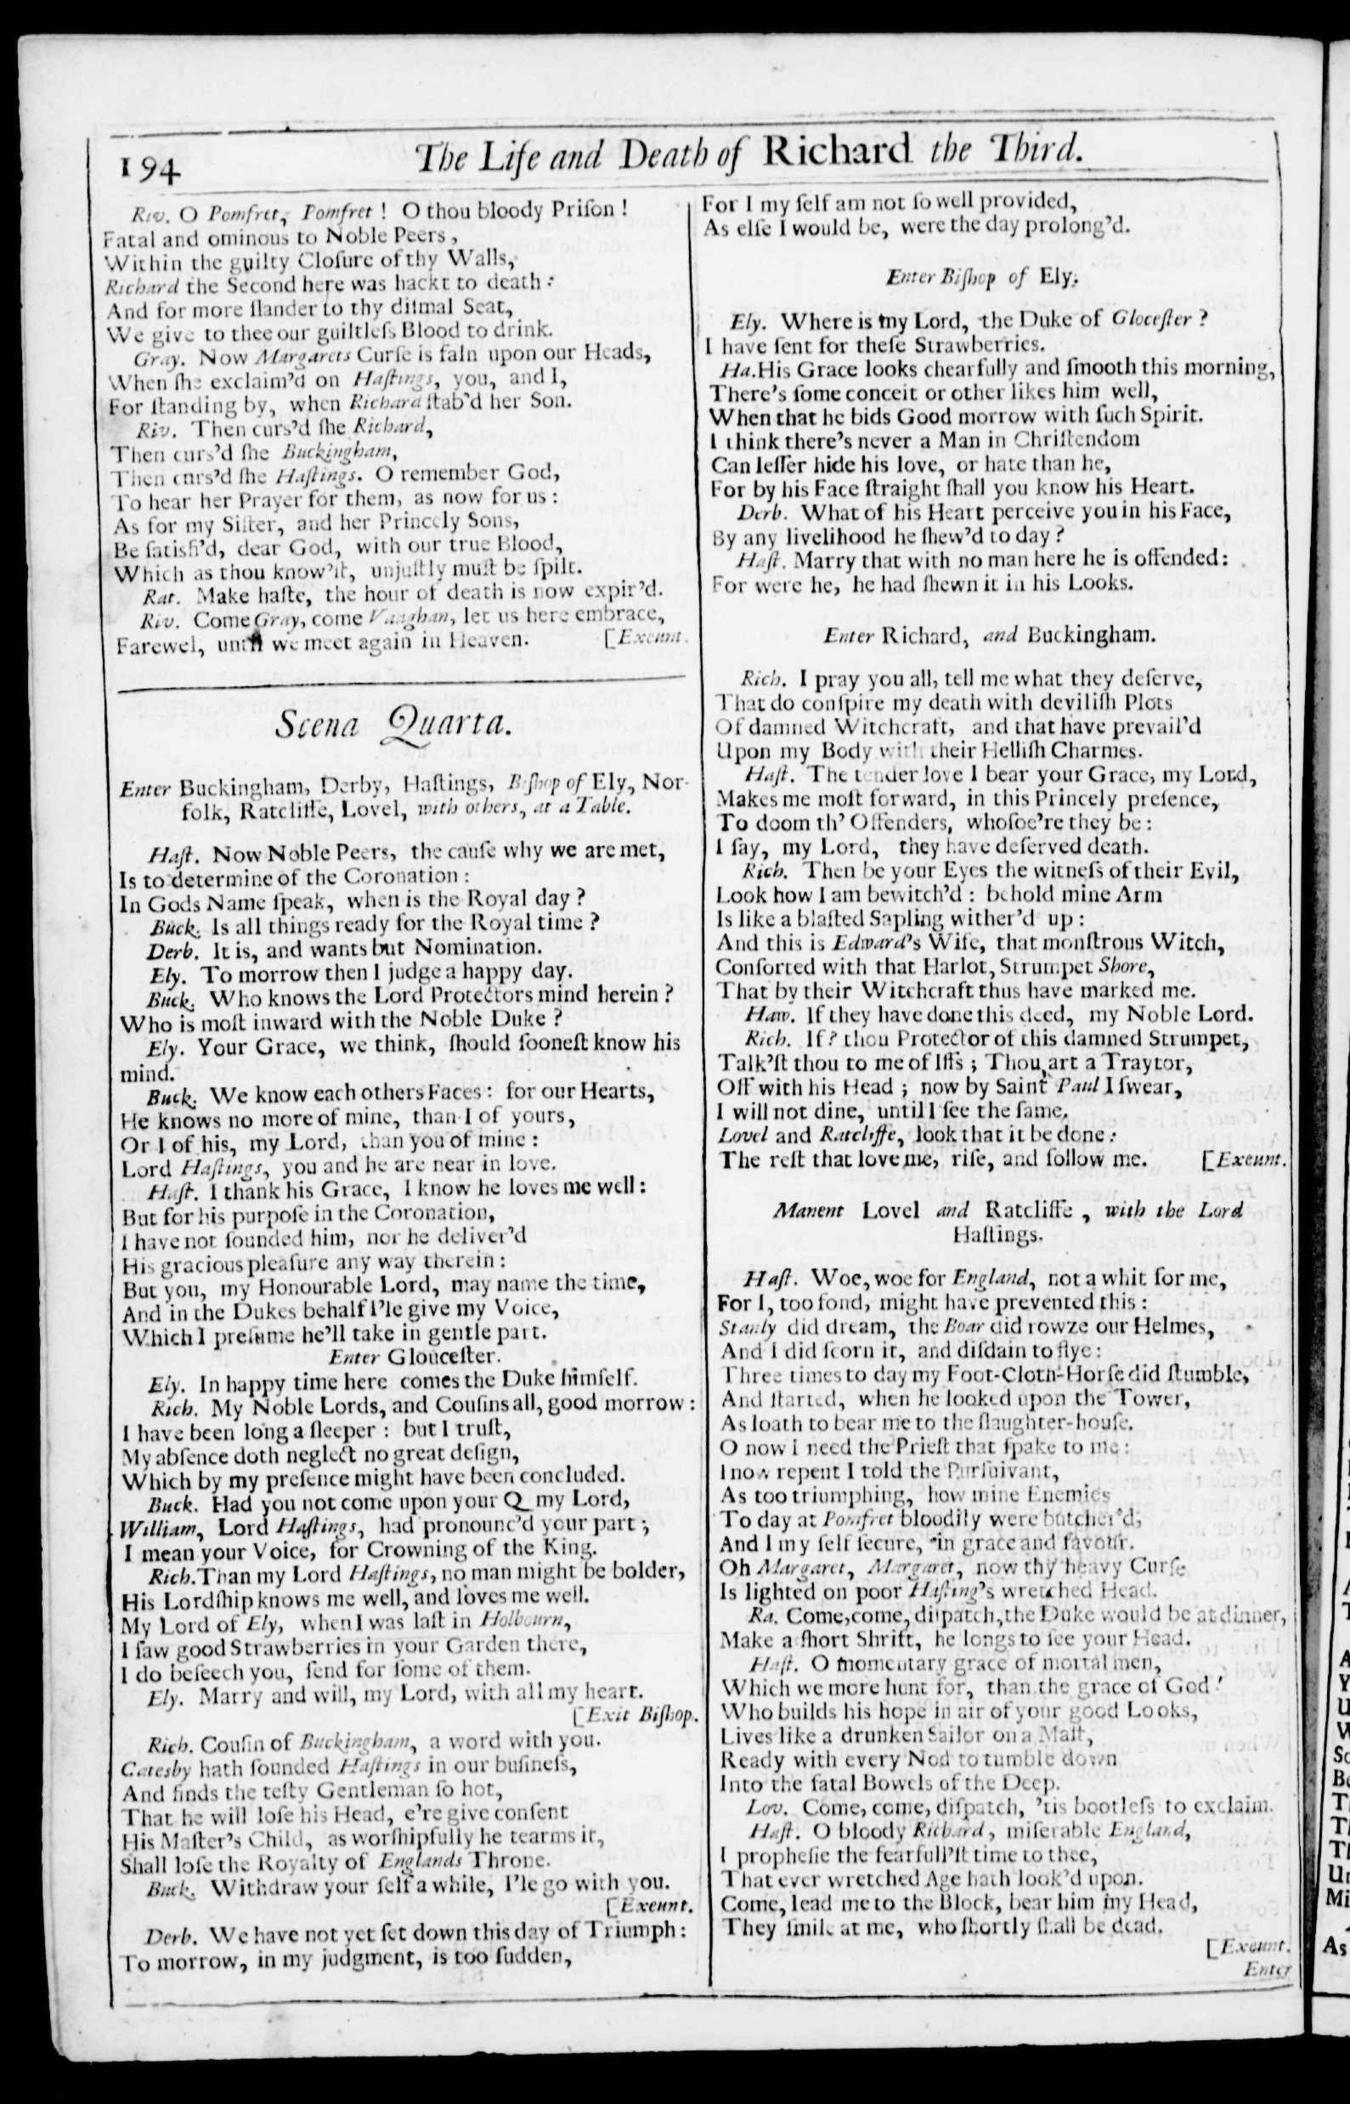 194
The Life and Death of Richard the Third.
Riv. O Pomfret, Pomfret! O thou bloody Priſon!
Fatal and ominous to Noble Peers,
Within the guilty Cloſure of thy Walls,
Richard the Second here was hackt to death:
And for more ſlander to thy diſmal Seat,
We give to thee our guiltleſs Blood to drink.
Gray. Now Margarets Curſe is faln upon our Heads,
When ſhe exclaim'd on Haſtings, you, and I,
For ſtanding by, when Richard ſtab'd her Son.
Riv. Then curs'd ſhe Richard,
Then curs'd ſhe Buckingham,
Then curs'd ſhe Haſtings. O remember God,
To hear her Prayer for them, as now for us:
As for my Siſter, and her Princely Sons,
Be ſatisfi'd, dear God, with our true Blood,
Which as thou know'ſt, unjuſtly muſt be ſpilt.
Rat. Make haſte, the hour of death is now expir'd.
Riv. Come Gray, come Vaughan, let us here embrace,
Farewel, until we meet again in Heaven. [Exeunt.
Scena Quarta.
Enter Buckingham, Derby, Haſtings, Biſhop of Ely, Nor-
folk, Ratcliffe, Lovel, with others, at a Table.
Haſt. Now Noble Peers, the cauſe why we are met,
Is to determine of the Coronation:
In Gods Name ſpeak, when is the Royal day?
Buck. Is all things ready for the Royal time?
Derb. It is, and wants but Nomination.
Ely. To morrow then I judge a happy day.
Buck. Who knows the Lord Protectors mind herein?
Who is moſt inward with the Noble Duke?
Ely. Your Grace, we think, ſhould ſooneſt know his
mind.
Buck. We know each others Faces: for our Hearts,
He knows no more of mine, than I of yours,
Or I of his, my Lord, than you of mine:
Lord Haſtings, you and he are near in love.
Haſt. I thank his Grace, I know he loves me well:
But for his purpoſe in the Coronation,
I have not ſounded him, nor he deliver'd
His gracious pleaſure any way therein:
But you, my Honourable Lord, may name the time,
And in the Dukes behalf I'le give my Voice,
Which I preſume he'll take in gentle part.
Enter Glouceſter.
Ely. In happy time here comes the Duke himſelf.
Rich. My Noble Lords, and Couſins all, good morrow:
I have been long a ſleeper: but I truſt,
My abſence doth neglect no great deſign,
Which by my preſence might have been concluded.
Buck. Had you not come upon your Q my Lord,
William, Lord Haſtings, had pronounc'd your part;
I mean your Voice, for Crowning of the King.
Rich. Than my Lord Haſtings, no man might be bolder,
His Lordſhip knows me well, and loves me well.
My Lord of Ely, when I was laſt in Holbourn,
I ſaw good Strawberries in your Garden there,
I do beſeech you, ſend for ſome of them.
Ely. Marry and will, my Lord, with all my heart.
[Exit Biſhop.
Rich. Couſin of Buckingham, a word with you.
Catesby hath ſounded Haſtings in our buſineſs,
And finds the teſty Gentleman ſo hot,
That he will loſe his Head, e're give conſent
His Maſter's Child, as worſhipfully he tearms it,
Shall loſe the Royalty of Englands Throne.
Buck. Withdraw your ſelf a while, I'le go with you.
[Exeunt.
Derb. We have not yet ſet down this day of Triumph:
To morrow, in my judgment, is too ſudden,
For I my ſelf am not ſo well provided,
As elſe I would be, were the day prolong'd.
Enter Biſhop of Ely.
Ely. Where is my Lord, the Duke of Gloceſter?
I have ſent for theſe Strawberries.
Ha. His Grace looks chearfully and ſmooth this morning,
There's ſome conceit or other likes him well,
When that he bids Good morrow with ſuch Spirit.
I think there's never a Man in Chriſtendom
Can leſſer hide his love, or hate than he,
For by his Face ſtraight ſhall you know his Heart.
Derb. What of his Heart perceive you in his Face,
By any livelihood he ſhew'd to day?
Haſt. Marry that with no man here he is offended:
For were he, he had ſhewn it in his Looks.
Enter Richard, and Buckingham.
Rich. I pray you all, tell me what they deſerve,
That do conſpire my death with deviliſh Plots
Of damned Witchcraft, and that have prevail'd
Upon my Body with their Helliſh Charmes.
Haſt. The tender love I bear your Grace, my Lord,
Makes me moſt forward, in this Princely preſence,
To doom th' Offenders, whoſoe're they be:
I ſay, my Lord, they have deſerved death.
Rich. Then be your Eyes the witneſs of their Evil,
Look how I am bewitch'd: behold mine Arm
Is like a blaſted Sapling wither'd up:
And this is Edward's Wife, that monſtrous Witch,
Conſorted with that Harlot, Strumpet Shore,
That by their Witchcraft thus have marked me.
Haw. If they have done this deed, my Noble Lord.
Rich. If? thou Protector of this damned Strumpet,
Talk'ſt thou to me of Iffs; Thou art a Traytor,
Off with his Head; now by Saint Paul I ſwear,
I will not dine, until I ſee the ſame.
Lovel and Ratcliffe, look that it be done:
The reſt that love me, riſe, and follow me. [Exeunt.
Manent Lovel and Ratcliffe, with the Lord
Haſtings.
Haſt. Woe, woe for England, not a whit for me,
For I, too fond, might have prevented this:
Stanly did dream, the Boar did rowze our Helmes,
And I did ſcorn it, and diſdain to flye:
Three times to day my Foot-Cloth-Horſe did ſtumble,
And ſtarted, when he looked upon the Tower,
As loath to bear me to the ſlaughter-houſe.
O now I need the Prieſt that ſpake to me:
I now repent I told the Purſuivant,
As too triumphing, how mine Enemies
To day at Pomfret bloodily were butcher'd,
And I my ſelf ſecure, in grace and favour.
Oh Margaret, Margaret, now thy heavy Curſe
Is lighted on poor Haſting's wretched Head.
Ra. Come, come, diſpatch, the Duke would be at dinner,
Make a ſhort Shrift, he longs to ſee your Head.
Haſt. O momentary grace of mortal men,
Which we more hunt for, than the grace of God!
Who builds his hope in air of your good Looks,
Lives like a drunken Sailor on a Maſt,
Ready with every Nod to tumble down
Into the fatal Bowels of the Deep.
Lov. Come, come, diſpatch, 'tis bootleſs to exclaim.
Haſt. O bloody Richard, miſerable England,
I propheſie the fearfull'ſt time to thee,
That ever wretched Age hath look'd upon.
Come, lead me to the Block, bear him my Head,
They ſmile at me, who ſhortly ſhall be dead.
[Exeunt.
Enter